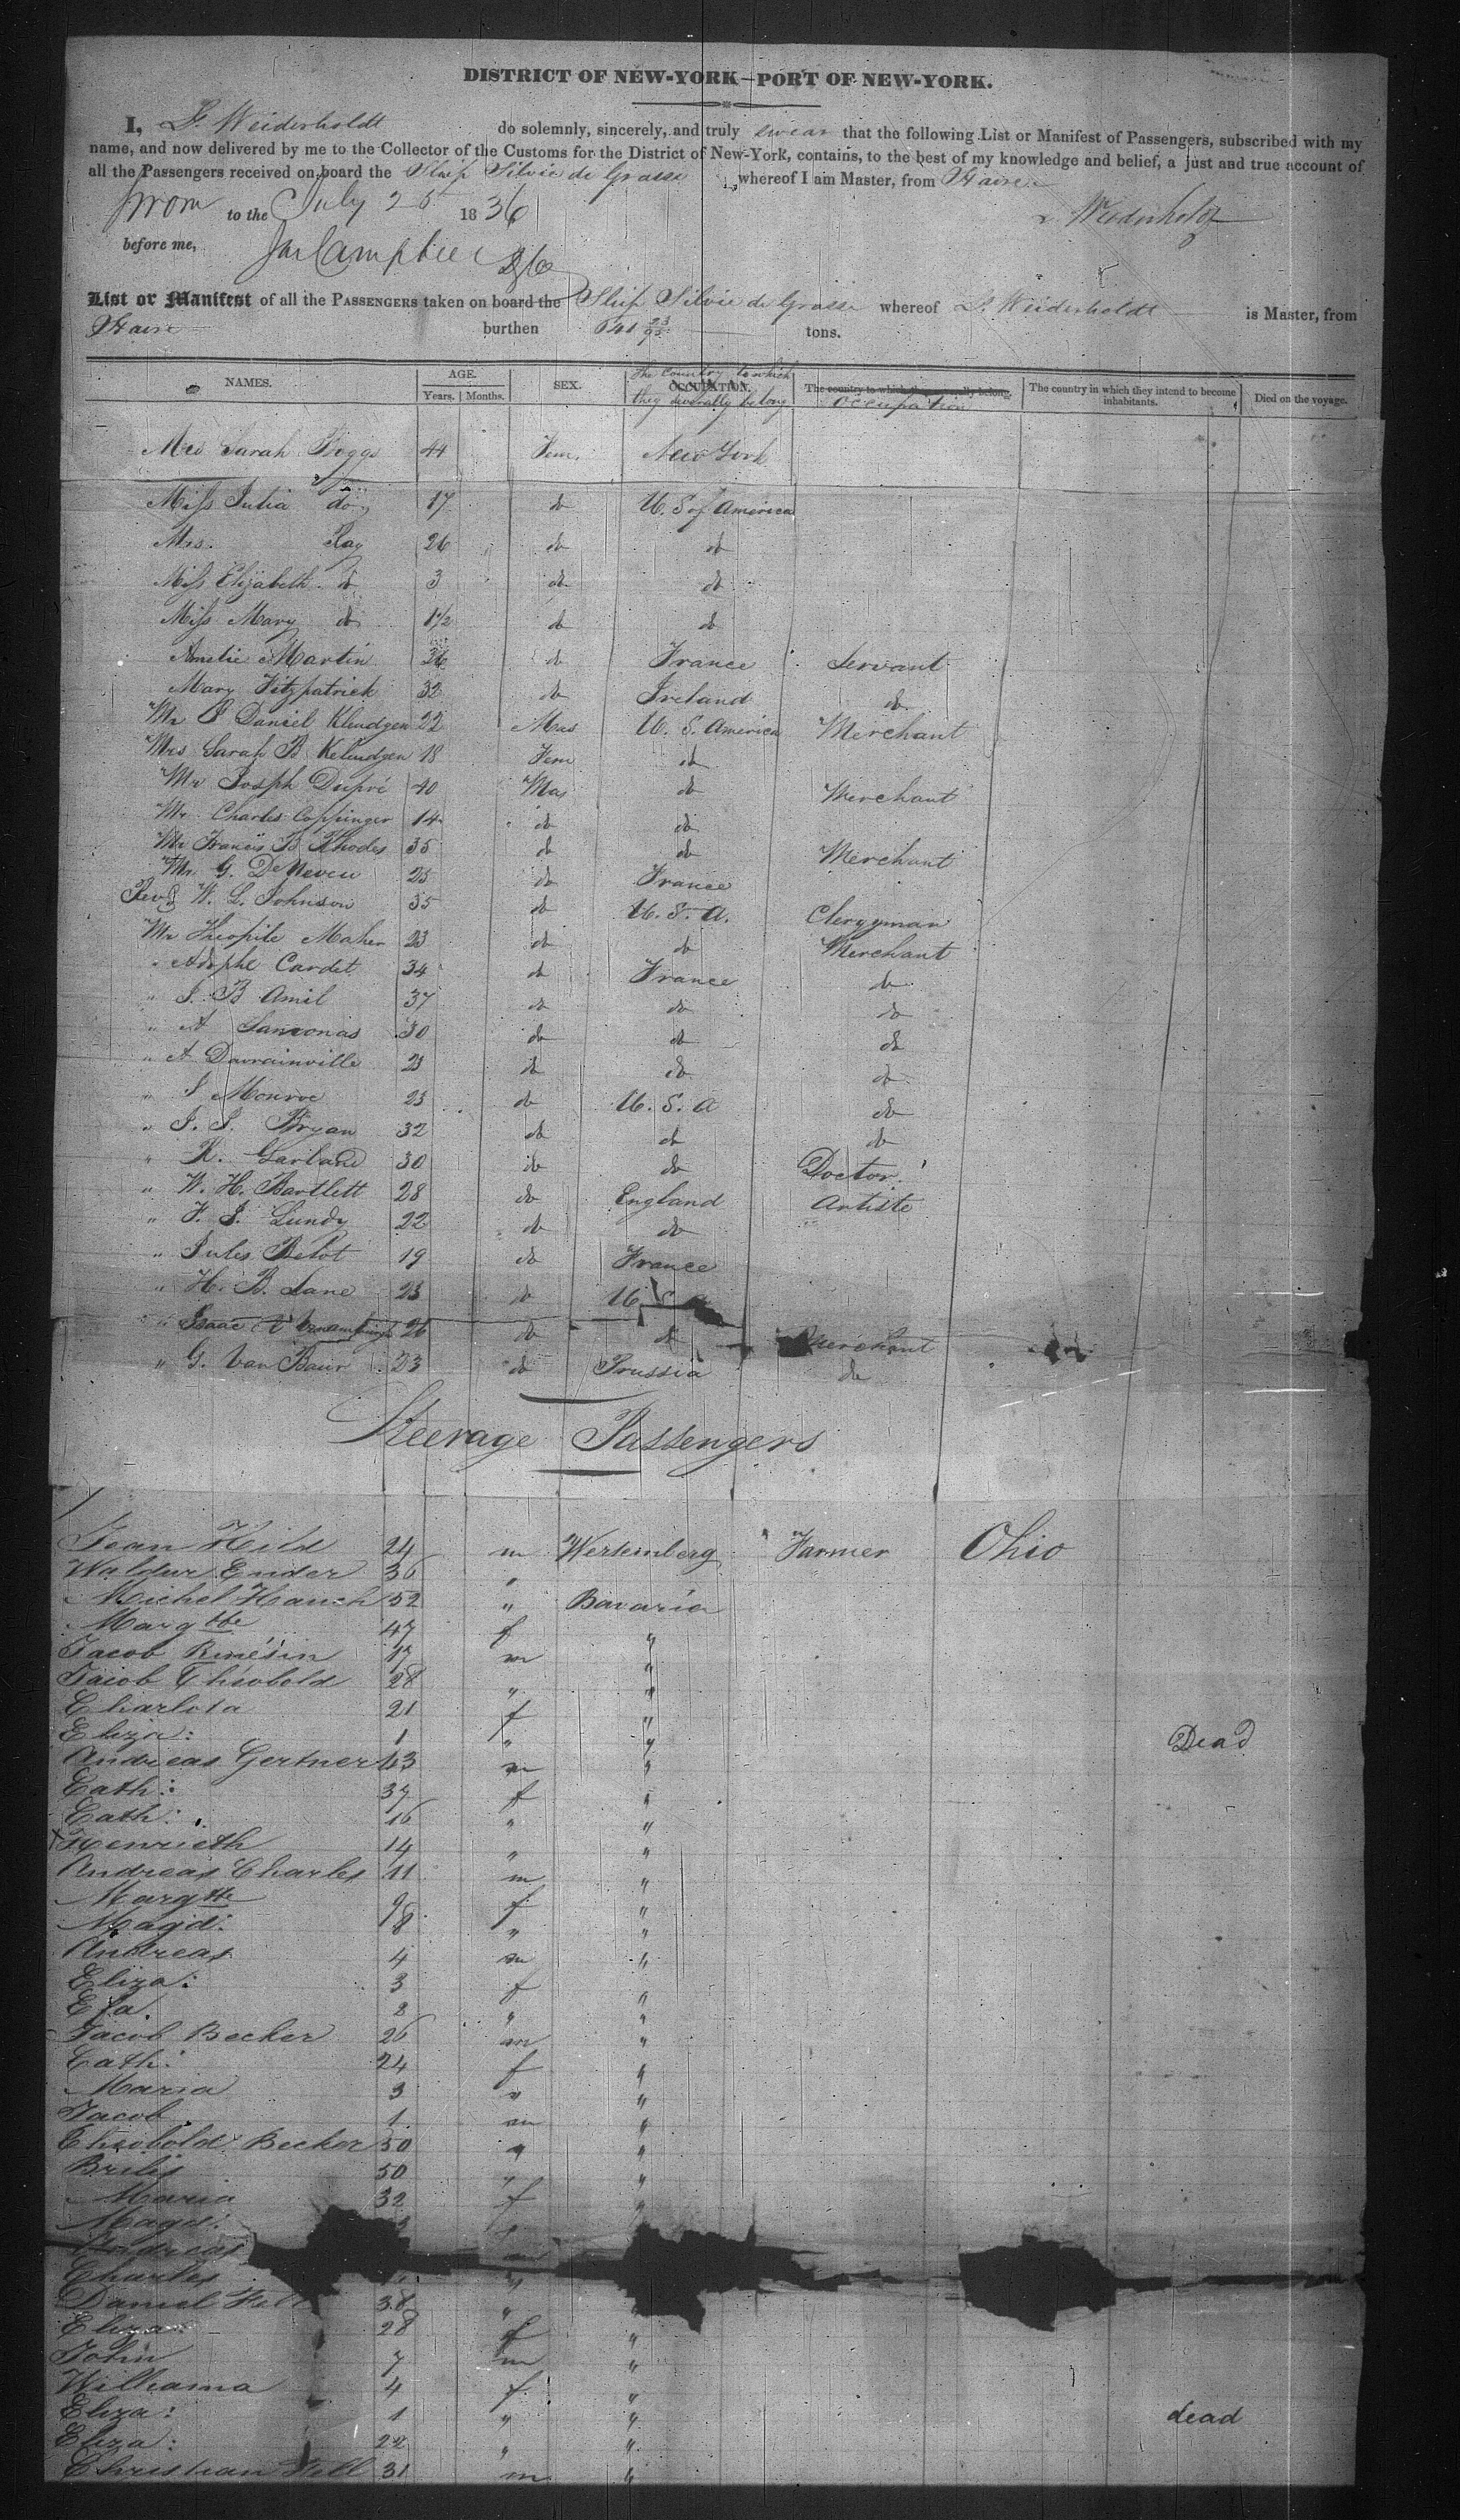 DISTRICT OF NEW-YORK—PORT OF NEW-YORK.
I, L. Weiderholdt do solemnly, sincerely, and truly swear that the following List or Manifest of Passengers, subscribed with my
name, and now delivered by me to the Collector of the Customs for the District of New-York, contains, to the best of my knowledge and belief, a just and true account of
all the Passengers received on board the Ship Silvie de Grasse whereof I am Master, from Havre
Sworn to the July 25 1836 L Weiderholdt
before me, Campbell
List or Manifest of all the PASSENGERS taken on board the Ship Silvie de Grasse whereof L. Weiderholdt is Master, from
Havre burthen 641 23/95 tons.
NAMES. AGE. Years. Months. SEX. OCCUPATION. The country to which they severally belong The country to which they severally belong. Occupation The country in which they intend to become inhabitants. Died on the voyage.
Mrs Sarah Boggs 44 Fem. New York
Miss Julia do 17 do U. S of America
Mrs. Ray 26 do do
Miss Elizabeth do 3 do do
Miss Mary do 1 1/2 do do
Amelie Martin 36 do France Servant
Mary Fitzpatrick 32 do Ireland do
Mr J Daniel Kleudgen 22 Mas U. S. America Merchant
Mrs Sarah B Kleudgen 18 Fem do
Mr Joseph Dupré 40 Mas do Merchant
Mr Charles Coppinger 14 do do
Mr Francis B Rhodes 35 do do Merchant
Mr. G. De Neveu 25 do France
Revd W. L. Johnson 35 do U. S. A. Clergyman
Mr Theophile Maher 23 do do Merchant
" Adolphe Cardet 34 do France do
" J. B Amil 37 do do do
" A Sanzonas 30 do do do
" A Davrainville 23 do do do
" J Monroe 23 do U. S. A do
" J. S. Bryan 32 do do do
" R. Garland 30 do do Doctor
" W. H. Bartlett 28 do England Artiste
" F. J. Lundy 22 do do
" Jules Belot 19 do France
" H. B. Lane 23 do U S A
" Isaac 26 do do Merchant
" G. Van Baur 23 do Prussia do
Steerage Passengers
Jean Hild 24 m Wertemberg Farmer Ohio
Waldur Ender 36 "
Michel Hauch 52 " Bavaria
Margtte 47 f "
Jacob 17 m "
Jacob Theobold 28 " "
Charlota 21 f "
Eliza: 1 " " Dead
Andreas Gertner 43 m "
Cath: 37 f "
Cath: 16 " "
Henrieth 14 " "
Andreas Charles 11 m "
Margtte 9 f "
Magd: 8 " "
Andreas 4 m "
Eliza: 3 f "
Efa. 2 " "
Jacob Becker 26 m "
Cath: 24 f "
Maria 3 " "
Jacob 1 m "
Theobold Becker 30 " "
50 " "
Maria 32 f "
Magd:
Andreas
Charles "
Daniel Fell 38 "
Eliza: 28 f "
John 7 m "
Williama 4 f "
Eliza: 1 " " dead
Eliza: 22 " "
Christian Fell 31 m "